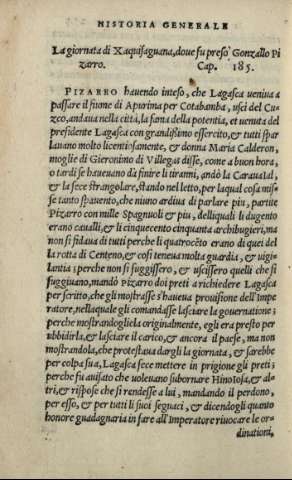 HISTORIA GENERALE
La giornata di Xaquisaguana, doue fu preso Gonzallo Pi
zarro. Cap. 185.
PIZARRO hauendo inteso, che Lagasca ueniua a
passare il fiume di Apurima per Cotabamba, usci del Cu-
zco, andaua nella città, la fama della potentia, et uenuta del
presidente Lagasca con grandissimo essercito, & tutti spar
lauano molto licentiosamente, & donna Maria Calderon,
moglie di Gieronimo di Villegas disse, come a buon hora,
o tardi se haueuano da finire li tiranni, andò la Carauaial,
& la fece strangolare, stando nel letto, per laqual cosa misse
se tanto spauento, che niuno ardiua di parlare piu, partite
Pizarro con mille Spagnuoli & piu, delliquali li dugento
erano caualli, & li cinquecento cinquanta archibugieri, ma
non si fidaua di tutti perche li quatrocēto erano di quei del
la rotta di Centeno, & cosi teneua molta guardia, & uigi-
lantia; perche non si fuggissero, & uscissero quelli che si
fuggiuano, mandò Pizarro doi preti a richiedere Lagasca
per scritto, che gli mostrasse s'haueua prouisione dell'Impe
ratore, nellaquale gli comandasse lasciare la gouernatione;
perche mostrandogliela originalmente, egli era presto per
ubbidirla, & lasciare il carico, & ancora il paese, ma non
mostrandola, che protestaua dargli la giornata, & sarebbe
per colpa sua, Lagasca fece mettere in prigione gli preti;
perche fu auisato che uoleuano subornare Hinoiosa, & al-
tri, & rispose che si rendesse a lui, mandando il perdono,
per esso, & per tutti li suoi seguaci, & dicendogli quanto
honore guadagnaria in fare all'Imperatore riuocare le or-
dinationi,